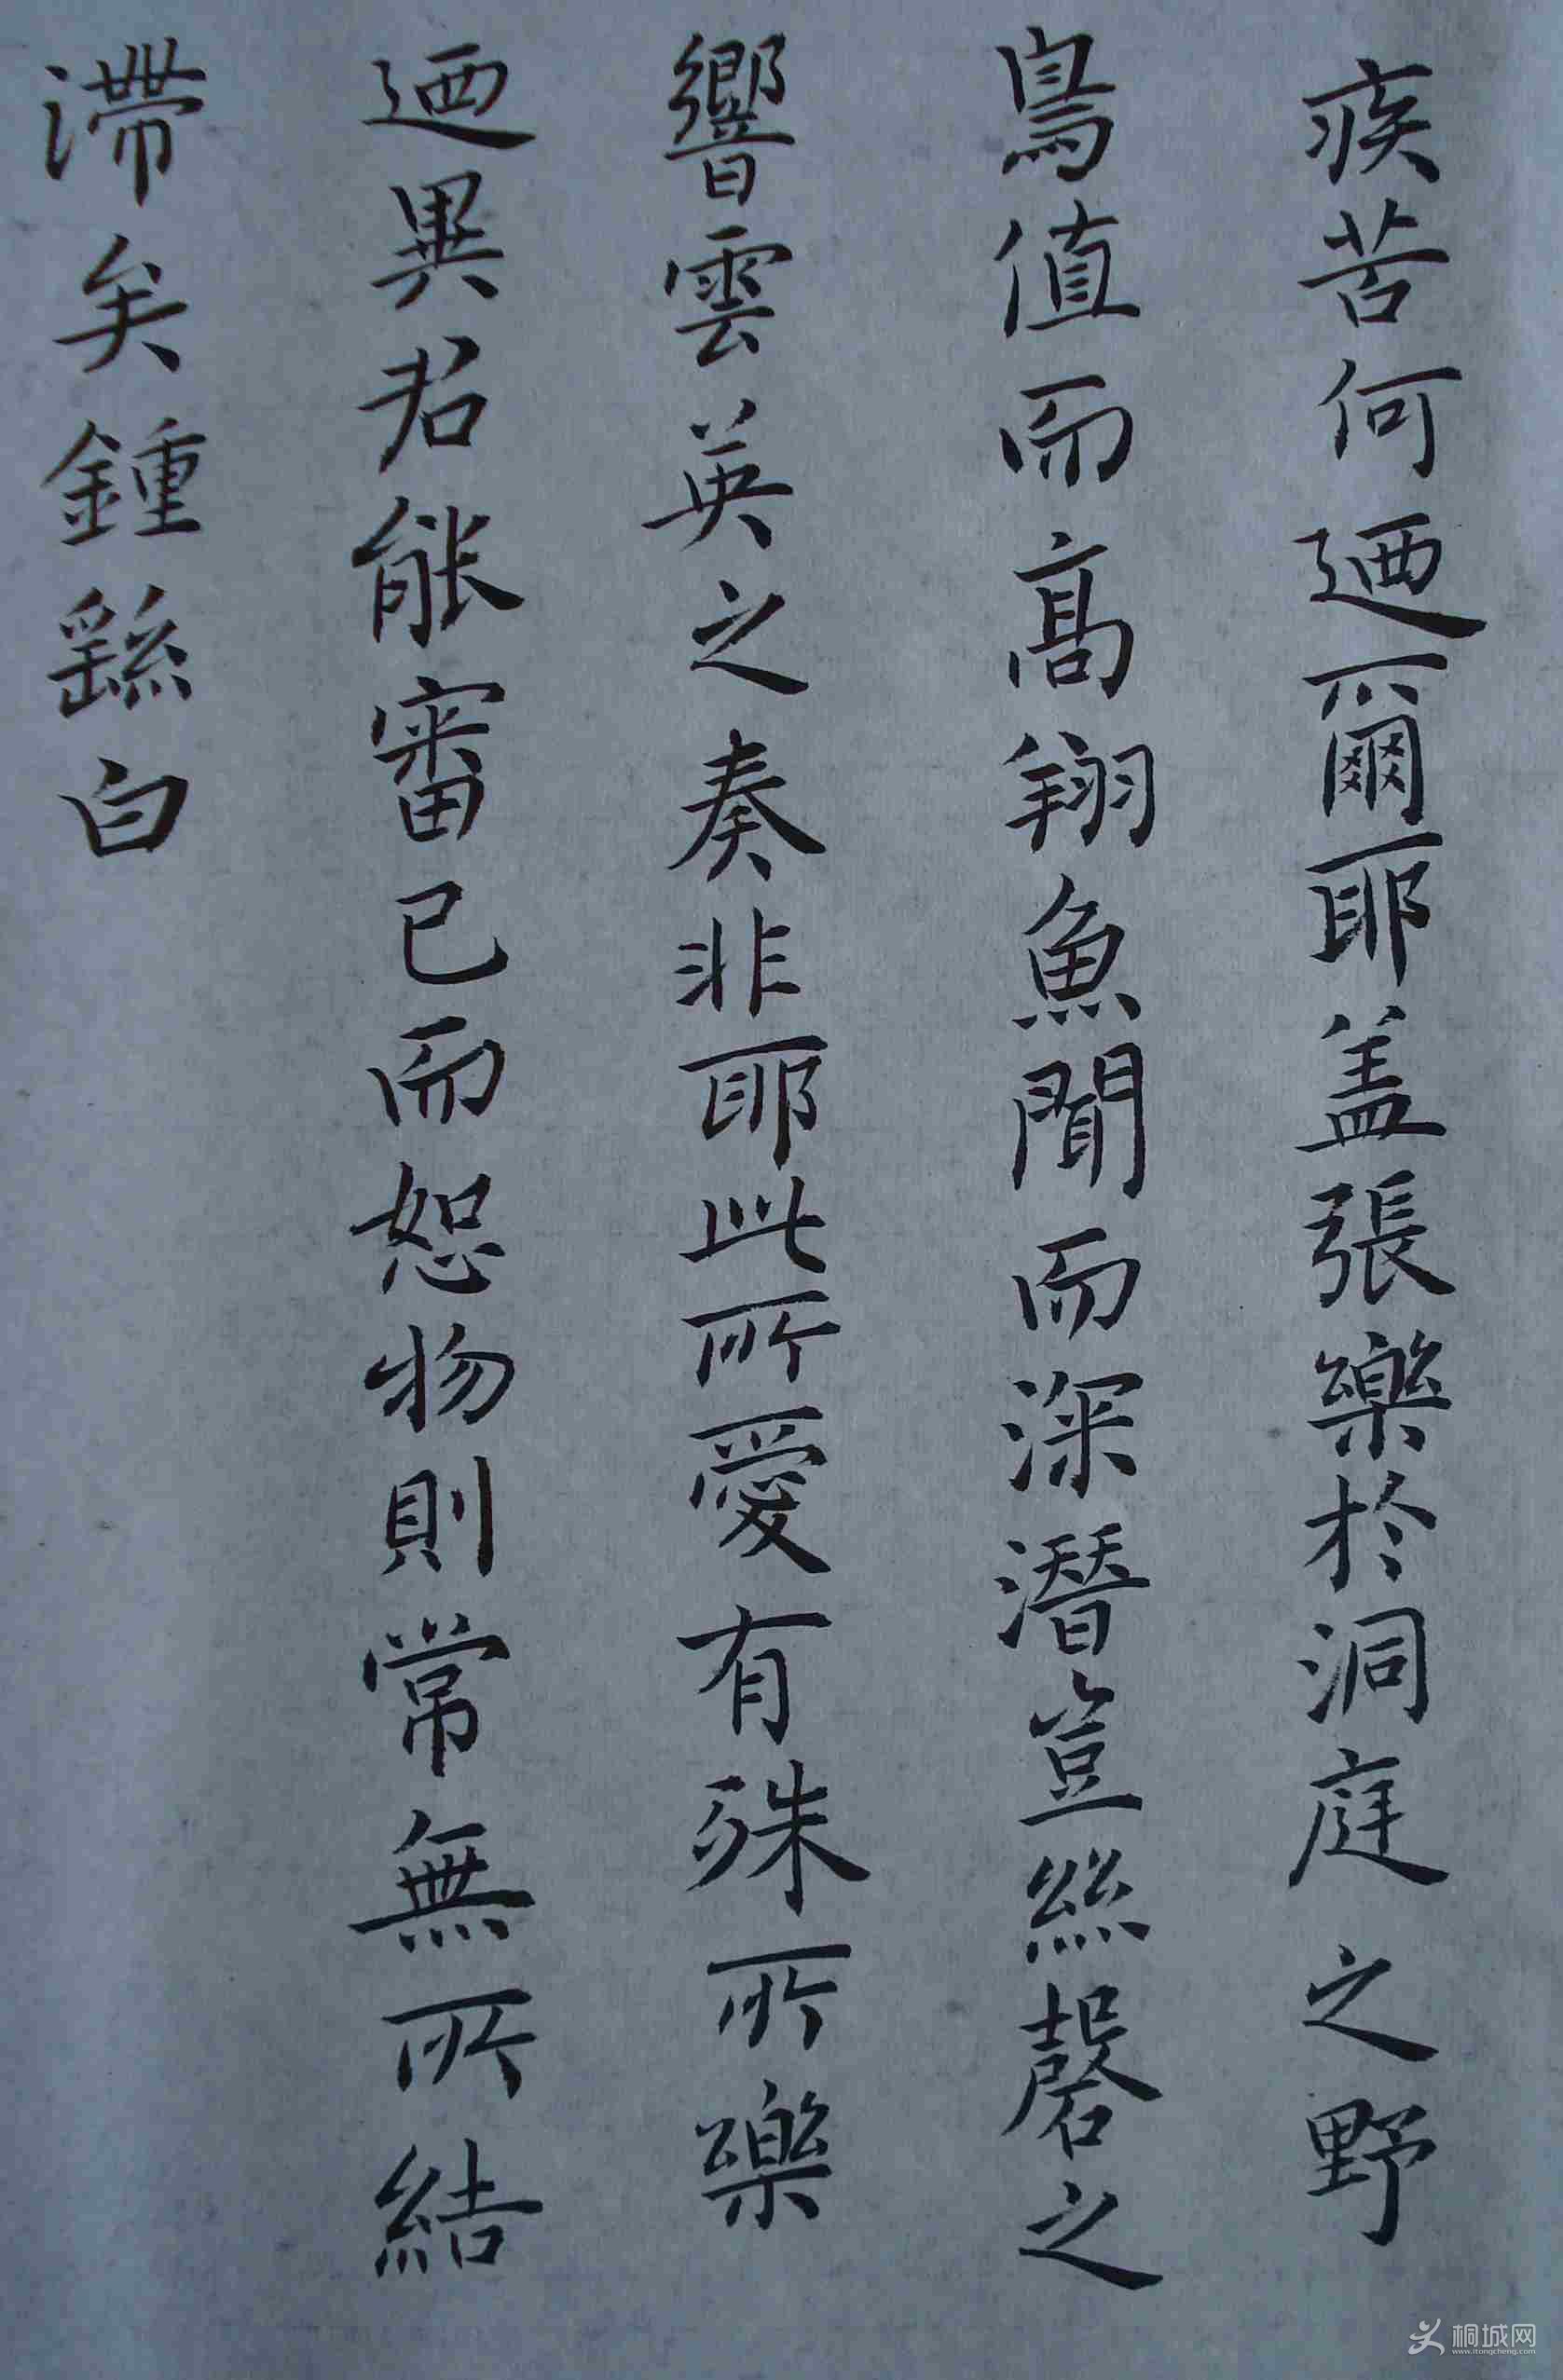 疾苦何迺爾耶盖張樂於洞庭之野
鳥值而高翔魚聞而深潛豈絲磬之
響雲英之奏非耶此所愛有殊所樂
迺異君能審己而恕物則常無所結
滯矣鍾繇白
桐城网
www.itongcheng.com